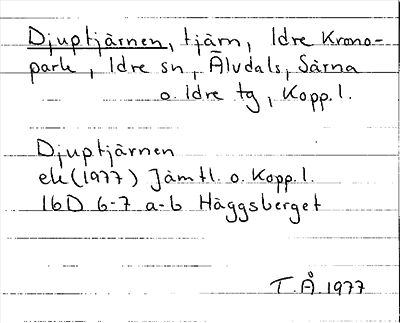 Djuptjärnen, tjärn, Idre Krono-
park, Idre sn, Älvdals, Särna
o. Idre tg, Kopp. l.
Djuptjärnen
ek (1977) Jämtl. o. Kopp. l.
16D 6-7 a-b Häggsberget
T.Å. 1977